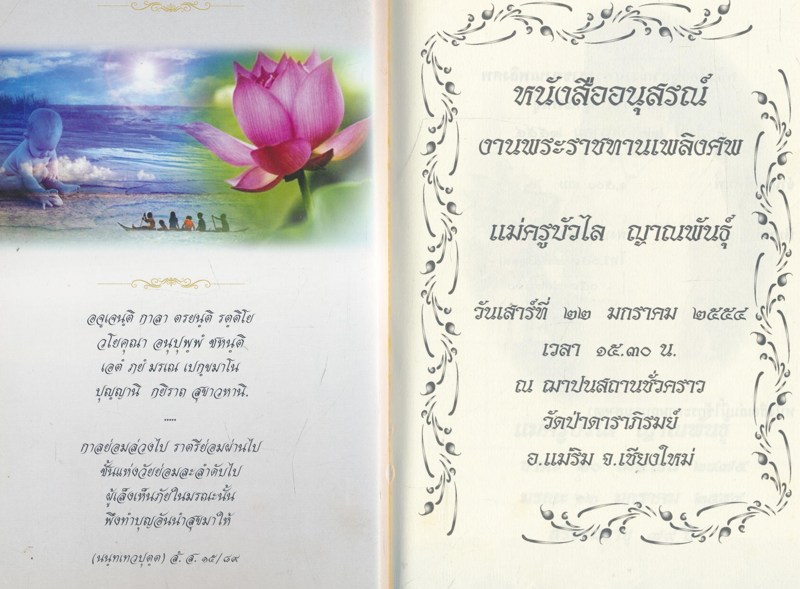 อจฺเจนฺติ กาลา ตรยนฺติ รตฺติโย
วโยคุณา อนุปุพฺพํ ชหนฺติ
เอตํ ภยํ มรเณ เปกฺขมาโน
ปุญฺญานิ กยิราถ สุขาวหานิ.
.....
กาลย่อมล่วงไป ราตรีย่อมผ่านไป
ชั้นแห่งวัยย่อมละลำดับไป
ผู้เล็งเห็นภัยในมรณะนั้น
พึงทำบุญอันนำสุขมาให้
(นนฺทเทวปุตฺต) สํ. ส. ๑๕/๘๙
หนังสืออนุสรณ์
งานพระราชทานเพลิงศพ
แม่ครูบัวไล ญาณพันธุ์
วันเสาร์ที่ ๒๒ มกราคม ๒๕๕๔
เวลา ๑๕.๓๐ น.
ณ ฌาปนสถานชั่วคราว
วัดป่าดาราภิรมย์
อ.แม่ริม จ.เชียงใหม่